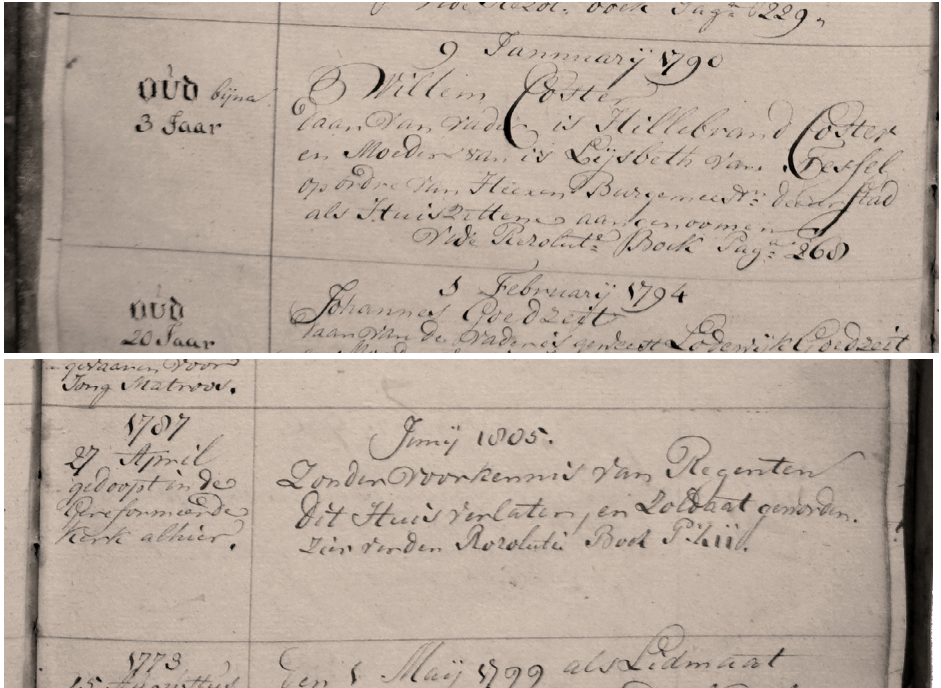 Vide Rezol: boek Pag: 229
9 Jannuarij 1790
OUD bijna
3 Jaar
Willem Coster
daar van vader is Hillebrand Coster
en Moeder van is Lijsbeth van Tessel
op ordre van Heeren Burgemeestrn: deeser stad
als Huiszittens aangenoomen
Vide Rezolute Boek Pag: 268
5 Februarij 1794
OUD
20 Jaar
Johannes Goedzeit
daar van de vader is geweest Lodewijk Goedzeit
gevaaren voor
Jong Matroos.
1787
27 April
gedoopt in de
Gereformeerde
Kerk alhier.
Junij 1805.
Zonder voorkennis van Regenten
dit Huis verlaten, en Zoldaat geworden.
zien verder Rozolutie Boek
1773
15 Augustus
den 1 Maij 1799 als Lidmaat